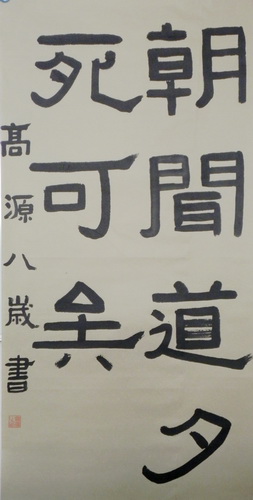 朝聞道夕
死可矣
高源八歲書